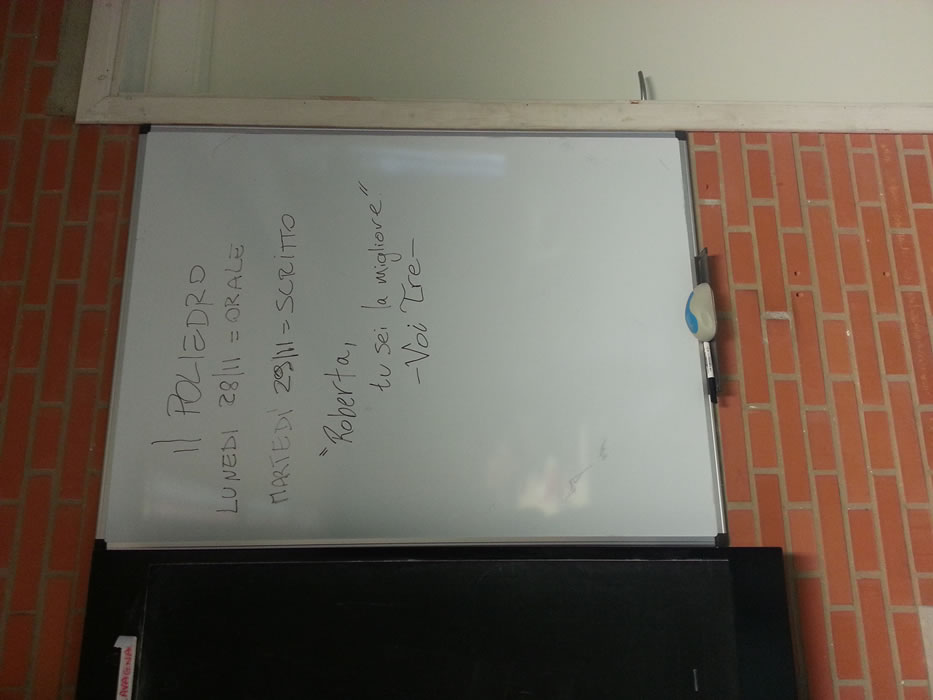 Il POLIEDRO
LUNEDI 28/11 = ORALE
MARTEDI' 29/11 = SCRITTO
"Roberta,
tu sei la migliore"
-Voi Tre-